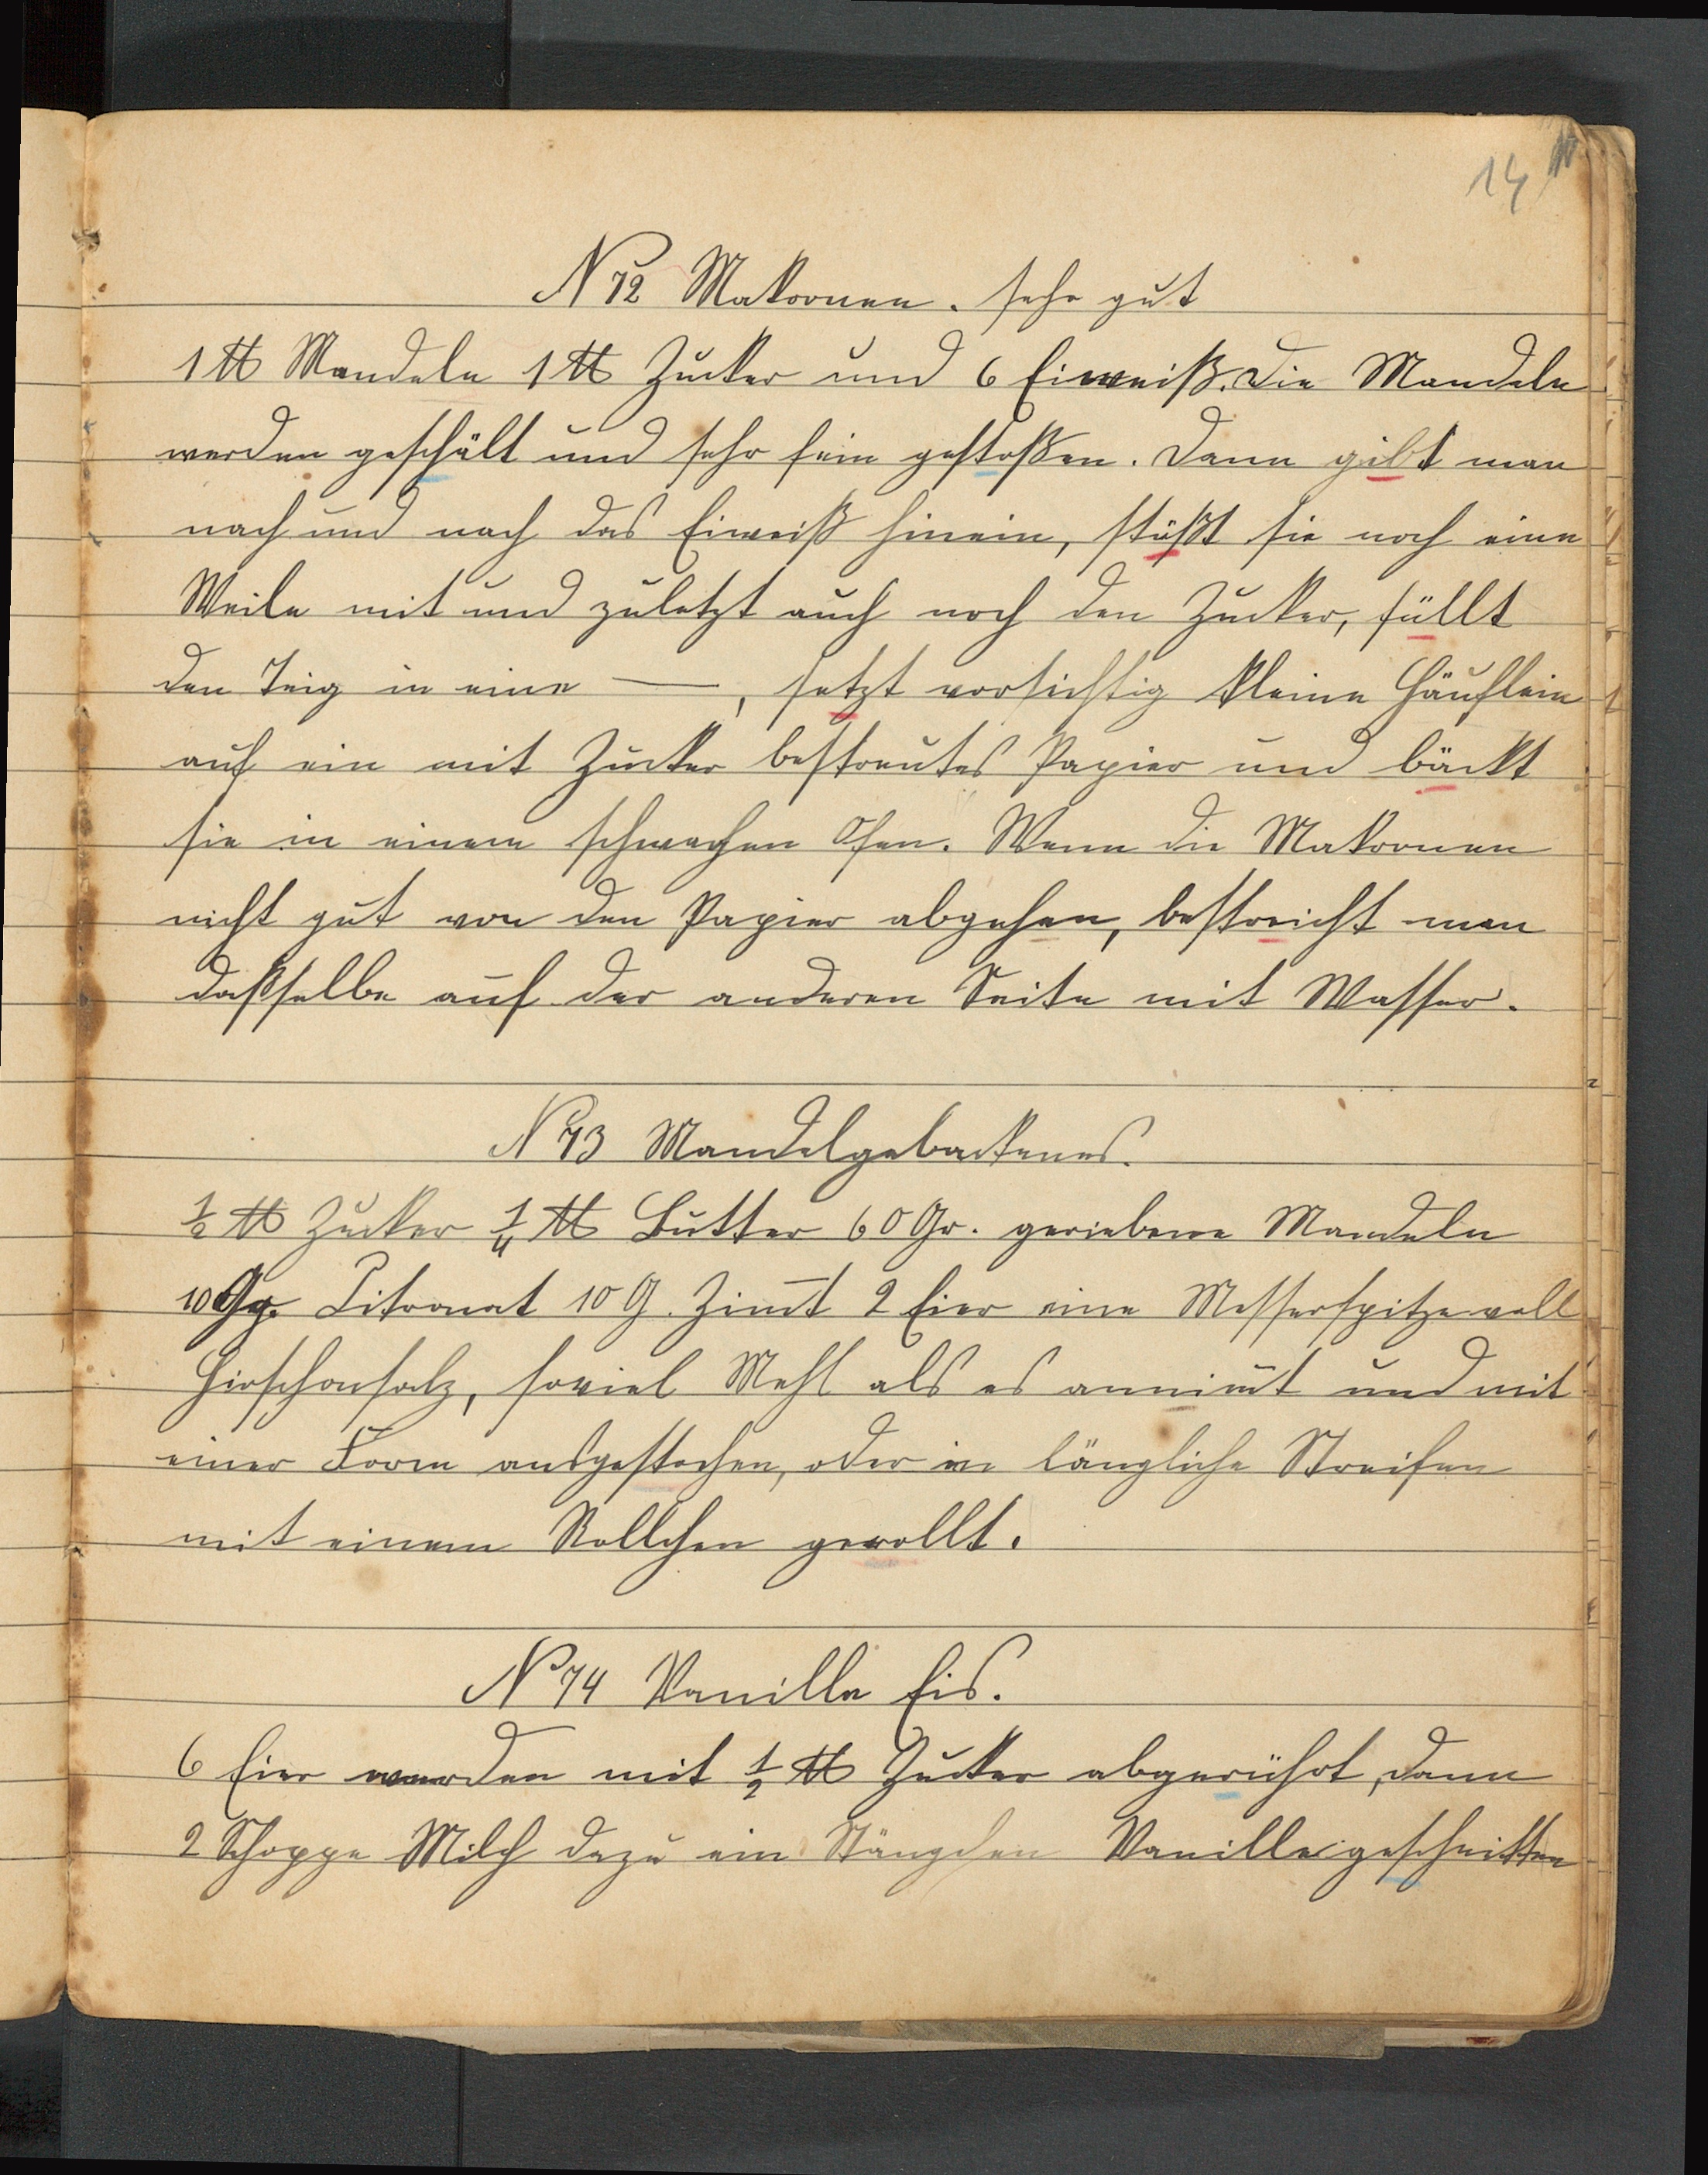 14
N 72 Makronen. sehr gut
1 ℔ Mandeln 1 ℔ Zucker und 6 Eiweiß. Die Mandeln
werden geschält und sehr fein gestoßen. Dann gibt man
nach und nach das Eiweiß hinein, stößt sie noch eine
Weile mit und zuletzt auch noch den Zucker, füllt
den Teig in eine —, setzt vorsichtig kleine Häuflein
auf ein mit Zucker bestreutes Papier und bäckt
sie in einem schwachen Ofen. Wenn die Makronen
nicht gut von den Papier abgehen, bestreicht man
dasselbe auf der anderen Seite mit Wasser.
N 73 Mandelgebackenes.
½ ℔ Zucker ¼ ℔ Butter 60 Gr. geriebene Mandeln
10 Gr. Citronat 10 G. Zim̄t 2 Eier eine Messerspitze voll
Hirschonsalz, soviel Mehl als es annim̄t und mit
einer Form ausgestochen, oder in längliche Streifen
mit einem Rollchen gerollt.
N 74 Vanille Eis.
6 Eier werden mit ½ ℔ Zucker abgerührt, dann
2 Schoppe Milch dazu ein Stängchen Vanille geschnitten